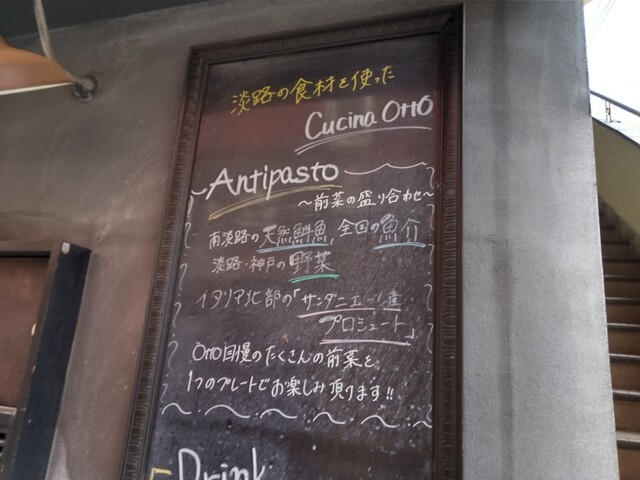 淡路の食材を使った
Cucina Otto
Antipasto
～前菜の盛り合わせ～
南淡路の天然鮮魚,全国の魚介
淡路・神戸の野菜
イタリア北部の「サンダニエーレ産
プロシュート」
Otto自慢のたくさんの前菜を
1つのプレートでお楽しみ頂けます!!
Drink